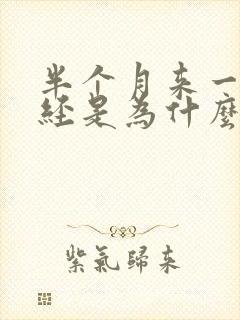 半个月来一
经是为什麼
紫氣歸来